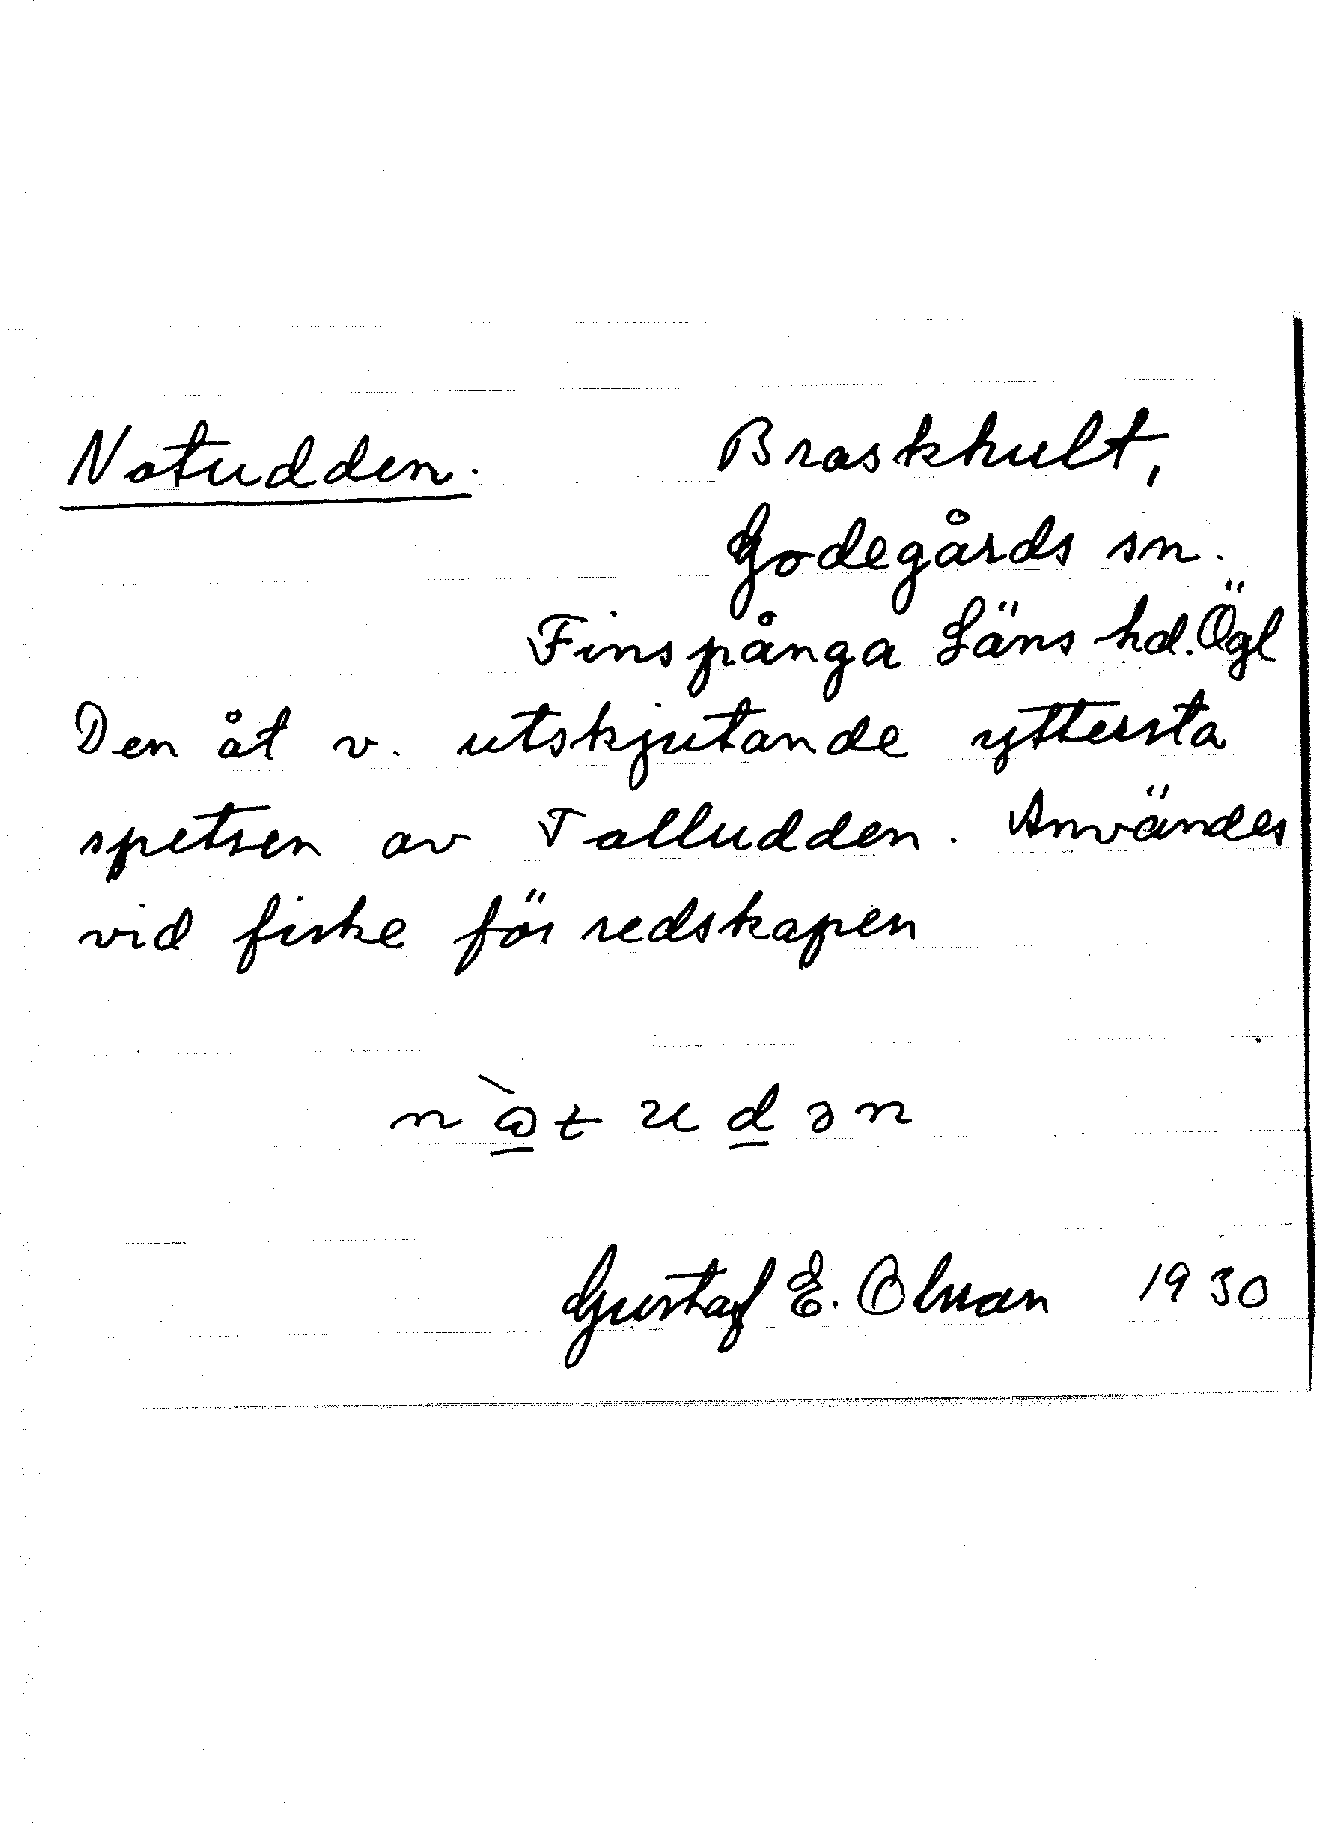 Notudden. Braskhult,
Godegårds sn.
Finspånga Läns hd. Ögl
Den åt v. utskjutande yttersta
spetsen av Talludden. Användes
vid fiske för redskapen
Gustaf E. Olsson 1930